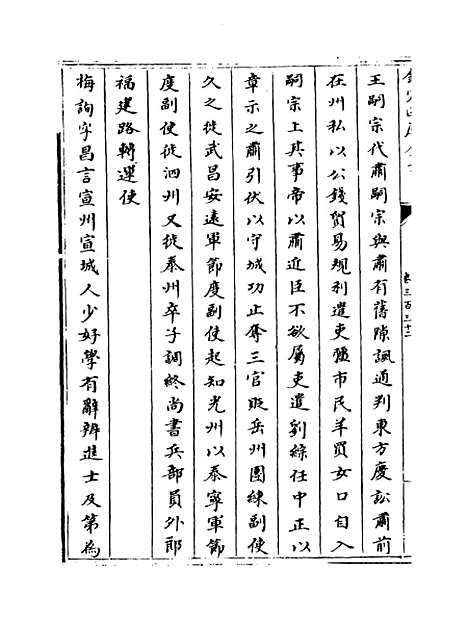 王嗣宗代肅嗣宗與肅有舊隙諷通判東方慶訟肅前
在州私以公錢貿易規利遣吏彊市民羊買女口自入
嗣宗上其事帝以肅近臣不欲屬吏遣劉綜任中正以
章示之肅引伏以守城功止奪三官貶岳州團練副使
久之徙武昌安遠軍節度副使起知光州以泰寧軍節
度副使徙泗州又徙泰州卒子調終尚書兵部員外郎
福建路轉運使
梅詢字昌言宣州宣城人少好學有辭辨進士及第為
卷三百三十二